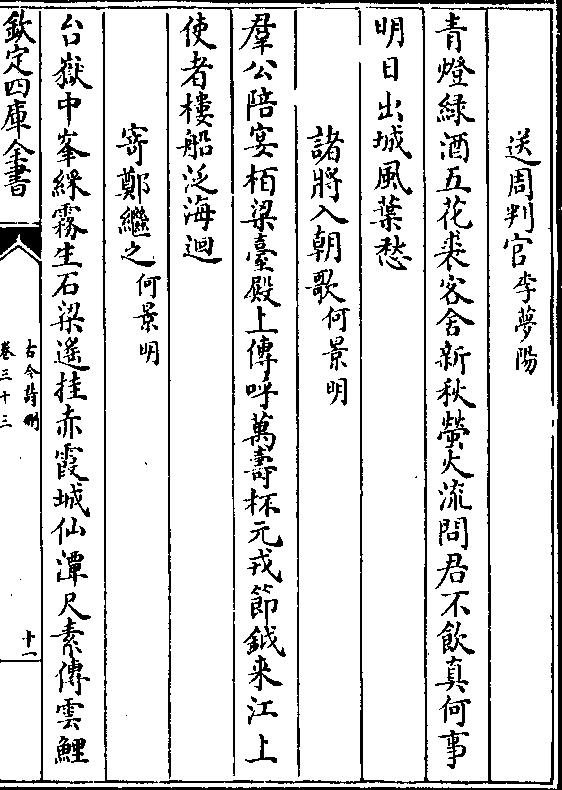 送周判官李夢陽
青燈緑酒五花裘客舍新秋螢火流問君不飲真何事
明日出城風葉愁
諸將入朝歌何景明
羣公陪宴栢梁臺殿上傳呼萬壽杯元戎節鉞来江上
使者樓船泛海迴
寄鄭繼之何景明
台嶽中峯綵霧生石梁遙挂赤霞城仙潭尺素傳雲鯉
欽定四庫全書
古今詩刪
卷三十三
十一